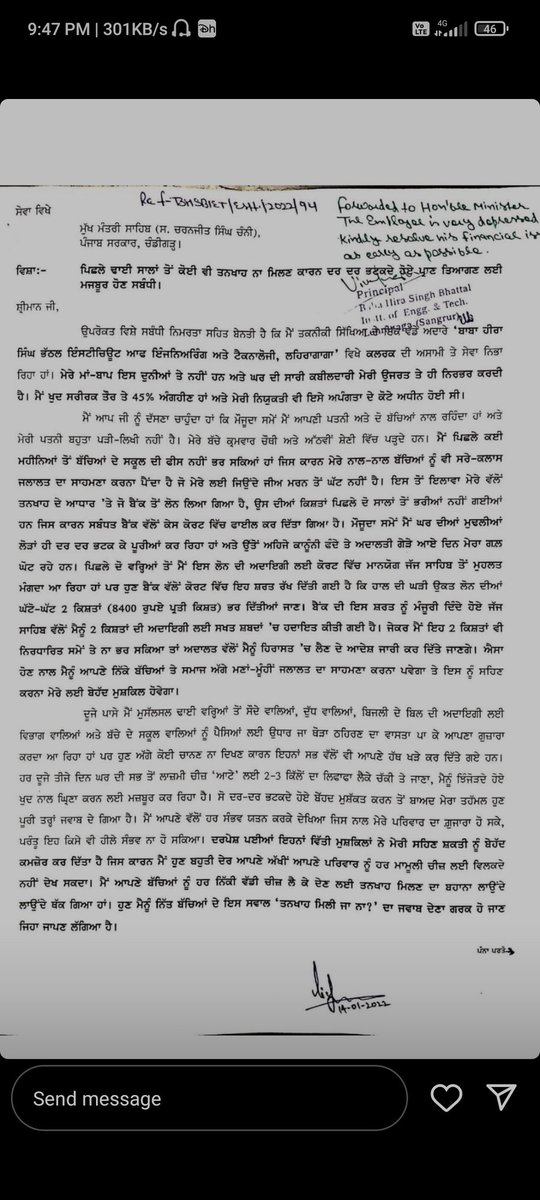 9:47 PM | 301KB/s
Vo LTE 4G 46
Ref-BHSBIET/Estt./2022/94
ਸੇਵਾ ਵਿਖੇ
forwarded to Hon'ble Minister
The Employee is very depressed
kindly resolve his financial iss
as early as possible.
ਮੁੱਖ ਮੰਤਰੀ ਸਾਹਿਬ (ਸ. ਚਰਨਜੀਤ ਸਿੰਘ ਚੰਨੀ),
ਪੰਜਾਬ ਸਰਕਾਰ, ਚੰਡੀਗੜ੍ਹ।
ਵਿਸ਼ਾ:- ਪਿਛਲੇ ਢਾਈ ਸਾਲਾਂ ਤੋਂ ਕੋਈ ਵੀ ਤਨਖਾਹ ਨਾ ਮਿਲਣ ਕਾਰਨ ਦਰ ਦਰ ਭਟਕਦੇ ਹੋਏ ਪ੍ਰਾਣ ਤਿਆਗਣ ਲਈ
ਮਜਬੂਰ ਹੋਣ ਸਬੰਧੀ।
Principal
Baba Hira Singh Bhattal
Instt. of Engg. & Tech.
Lehragaga (Sangrur)
ਸ਼੍ਰੀਮਾਨ ਜੀ,
ਉਪਰੋਕਤ ਵਿਸ਼ੇ ਸਬੰਧੀ ਨਿਮਰਤਾ ਸਹਿਤ ਬੇਨਤੀ ਹੈ ਕਿ ਮੈਂ ਤਕਨੀਕੀ ਸਿੱਖਿਆ ਦੇ ਇੱਕ ਵੱਡੇ ਅਦਾਰੇ 'ਬਾਬਾ ਹੀਰਾ
ਸਿੰਘ ਭੱਠਲ ਇੰਸਟੀਚਿਊਟ ਆਫ ਇੰਜਨਿਅਰਿੰਗ ਅਤੇ ਟੈਕਨਾਲੋਜੀ, ਲਹਿਰਾਗਾਗਾ' ਵਿਖੇ ਕਲਰਕ ਦੀ ਅਸਾਮੀ ਤੇ ਸੇਵਾ ਨਿਭਾ
ਰਿਹਾ ਹਾਂ। ਮੇਰੇ ਮਾਂ-ਬਾਪ ਇਸ ਦੁਨੀਆਂ ਤੇ ਨਹੀਂ ਹਨ ਅਤੇ ਘਰ ਦੀ ਸਾਰੀ ਕਬੀਲਦਾਰੀ ਮੇਰੀ ਉਜਰਤ ਤੇ ਹੀ ਨਿਰਭਰ ਕਰਦੀ
ਹੈ। ਮੈਂ ਖੁਦ ਸਰੀਰਕ ਤੌਰ ਤੇ 45% ਅੰਗਹੀਣ ਹਾਂ ਅਤੇ ਮੇਰੀ ਨਿਯੁਕਤੀ ਵੀ ਇਸੇ ਅਪੰਗਤਾ ਦੇ ਕੋਟੇ ਅਧੀਨ ਹੋਈ ਸੀ।
ਮੈਂ ਆਪ ਜੀ ਨੂੰ ਦੱਸਣਾ ਚਾਹੁੰਦਾ ਹਾਂ ਕਿ ਮੌਜੂਦਾ ਸਮੇਂ ਮੈਂ ਆਪਣੀ ਪਤਨੀ ਅਤੇ ਦੋ ਬੱਚਿਆਂ ਨਾਲ ਰਹਿੰਦਾ ਹਾਂ ਅਤੇ
ਮੇਰੀ ਪਤਨੀ ਬਹੁਤਾ ਪੜੀ-ਲਿਖੀ ਨਹੀਂ ਹੈ। ਮੇਰੇ ਬੱਚੇ ਕ੍ਰਮਵਾਰ ਚੌਥੀ ਅਤੇ ਅੱਠਵੀਂ ਸ਼੍ਰੇਣੀ ਵਿੱਚ ਪੜ੍ਹਦੇ ਹਨ। ਮੈਂ ਪਿਛਲੇ ਕਈ
ਮਹੀਨਿਆਂ ਤੋਂ ਬੱਚਿਆਂ ਦੇ ਸਕੂਲ ਦੀ ਫੀਸ ਨਹੀਂ ਭਰ ਸਕਿਆ ਹਾਂ ਜਿਸ ਕਾਰਨ ਮੇਰੇ ਨਾਲ-ਨਾਲ ਬੱਚਿਆਂ ਨੂੰ ਵੀ ਸਰੇ-ਕਲਾਸ
ਜਲਾਲਤ ਦਾ ਸਾਹਮਣਾ ਕਰਨਾ ਪੈਂਦਾ ਹੈ ਜੋ ਮੇਰੇ ਲਈ ਜਿਉਂਦੇ ਜੀਅ ਮਰਨ ਤੋਂ ਘੱਟ ਨਹੀਂ ਹੈ। ਇਸ ਤੋਂ ਇਲਾਵਾ ਮੇਰੇ ਵੱਲੋਂ
ਤਨਖਾਹ ਦੇ ਆਧਾਰ 'ਤੇ ਜੋ ਬੈਂਕ ਤੋਂ ਲੋਨ ਲਿਆ ਗਿਆ ਹੈ, ਉਸ ਦੀਆਂ ਕਿਸ਼ਤਾਂ ਪਿਛਲੇ ਦੋ ਸਾਲਾਂ ਤੋਂ ਭਰੀਆਂ ਨਹੀਂ ਗਈਆਂ
ਹਨ ਜਿਸ ਕਾਰਨ ਸਬੰਧਤ ਬੈਂਕ ਵੱਲੋਂ ਕੇਸ ਕੋਰਟ ਵਿੱਚ ਫਾਈਲ ਕਰ ਦਿੱਤਾ ਗਿਆ ਹੈ। ਮੌਜੂਦਾ ਸਮੇਂ ਮੈਂ ਘਰ ਦੀਆਂ ਮੁਢਲੀਆਂ
ਲੋੜਾਂ ਹੀ ਦਰ ਦਰ ਭਟਕ ਕੇ ਪੂਰੀਆਂ ਕਰ ਰਿਹਾ ਹਾਂ ਅਤੇ ਉੱਤੋਂ ਅਜਿਹੇ ਕਾਨੂੰਨੀ ਫੰਦੇ ਤੇ ਅਦਾਲਤੀ ਗੇੜੇ ਆਏ ਦਿਨ ਮੇਰਾ ਗਲ
ਘੋਟ ਰਹੇ ਹਨ। ਪਿਛਲੇ ਦੋ ਵਰ੍ਹਿਆਂ ਤੋਂ ਮੈਂ ਇਸ ਲੋਨ ਦੀ ਅਦਾਇਗੀ ਲਈ ਕੋਰਟ ਵਿੱਚ ਮਾਨਯੋਗ ਜੱਜ ਸਾਹਿਬ ਤੋਂ ਮੁਹਲਤ
ਮੰਗਦਾ ਆ ਰਿਹਾ ਹਾਂ ਪਰ ਹੁਣ ਬੈਂਕ ਵੱਲੋਂ ਕੋਰਟ ਵਿੱਚ ਇਹ ਸ਼ਰਤ ਰੱਖ ਦਿੱਤੀ ਗਈ ਹੈ ਕਿ ਹਾਲ ਦੀ ਘੜੀ ਉਕਤ ਲੋਨ ਦੀਆਂ
ਘੱਟੋ-ਘੱਟ 2 ਕਿਸ਼ਤਾਂ (8400 ਰੁਪਏ ਪ੍ਰਤੀ ਕਿਸ਼ਤ) ਭਰ ਦਿੱਤੀਆਂ ਜਾਣ। ਬੈਂਕ ਦੀ ਇਸ ਸ਼ਰਤ ਨੂੰ ਮੰਜੂਰੀ ਦਿੰਦੇ ਹੋਏ ਜੱਜ
ਸਾਹਿਬ ਵੱਲੋਂ ਮੈਨੂੰ 2 ਕਿਸ਼ਤਾਂ ਦੀ ਅਦਾਇਗੀ ਲਈ ਸਖਤ ਸ਼ਬਦਾਂ 'ਚ ਹਦਾਇਤ ਕੀਤੀ ਗਈ ਹੈ। ਜੇਕਰ ਮੈਂ ਇਹ 2 ਕਿਸ਼ਤਾਂ ਵੀ
ਨਿਰਧਾਰਿਤ ਸਮੇਂ ਤੇ ਨਾ ਭਰ ਸਕਿਆ ਤਾਂ ਅਦਾਲਤ ਵੱਲੋਂ ਮੈਨੂੰ ਹਿਰਾਸਤ 'ਚ ਲੈਣ ਦੇ ਆਦੇਸ਼ ਜਾਰੀ ਕਰ ਦਿੱਤੇ ਜਾਣਗੇ। ਐਸਾ
ਹੋਣ ਨਾਲ ਮੈਨੂੰ ਆਪਣੇ ਨਿੱਕੇ ਬੱਚਿਆਂ ਤੇ ਸਮਾਜ ਅੱਗੇ ਮਣਾਂ-ਮੂੰਹੀਂ ਜਲਾਲਤ ਦਾ ਸਾਹਮਣਾ ਕਰਨਾ ਪਵੇਗਾ ਤੇ ਇਸ ਨੂੰ ਸਹਿਣ
ਕਰਨਾ ਮੇਰੇ ਲਈ ਬੇਹੱਦ ਮੁਸ਼ਕਿਲ ਹੋਵੇਗਾ।
ਦੂਜੇ ਪਾਸੇ ਮੈਂ ਮੁਸੱਲਸਲ ਢਾਈ ਵਰ੍ਹਿਆਂ ਤੋਂ ਸੌਦੇ ਵਾਲਿਆਂ, ਦੁੱਧ ਵਾਲਿਆਂ, ਬਿਜਲੀ ਦੇ ਬਿਲ ਦੀ ਅਦਾਇਗੀ ਲਈ
ਵਿਭਾਗ ਵਾਲਿਆਂ ਅਤੇ ਬੱਚੇ ਦੇ ਸਕੂਲ ਵਾਲਿਆਂ ਨੂੰ ਪੈਸਿਆਂ ਲਈ ਉਧਾਰ ਜਾਂ ਥੋੜਾ ਠਹਿਰਣ ਦਾ ਵਾਸਤਾ ਪਾ ਕੇ ਆਪਣਾ ਗੁਜ਼ਾਰਾ
ਕਰਦਾ ਆ ਰਿਹਾ ਹਾਂ ਪਰ ਹੁਣ ਅੱਗੇ ਕੋਈ ਚਾਨਣ ਨਾ ਦਿਖਣ ਕਾਰਨ ਇਹਨਾਂ ਸਭ ਵੱਲੋਂ ਵੀ ਆਪਣੇ ਹੱਥ ਖੜੇ ਕਰ ਦਿੱਤੇ ਗਏ ਹਨ।
ਹਰ ਦੂਜੇ ਤੀਜੇ ਦਿਨ ਘਰ ਦੀ ਸਭ ਤੋਂ ਲਾਜ਼ਮੀ ਚੀਜ਼ 'ਆਟੇ' ਲਈ 2-3 ਕਿੱਲੋਂ ਦਾ ਲਿਫਾਫਾ ਲੈਕੇ ਚੱਕੀ ਤੇ ਜਾਣਾ, ਮੈਨੂੰ ਝਿੰਜੋੜਦੇ ਹੋਏ
ਖੁਦ ਨਾਲ ਘ੍ਰਿਣਾ ਕਰਨ ਲਈ ਮਜਬੂਰ ਕਰ ਰਿਹਾ ਹੈ। ਸੋ ਦਰ-ਦਰ ਭਟਕਦੇ ਹੋਏ ਬੇਹੱਦ ਮੁਸ਼ੱਕਤ ਕਰਨ ਤੋਂ ਬਾਅਦ ਮੇਰਾ ਤਹੱਮਲ ਹੁਣ
ਪੂਰੀ ਤਰ੍ਹਾਂ ਜਵਾਬ ਦੇ ਗਿਆ ਹੈ। ਮੈਂ ਆਪਣੇ ਵੱਲੋਂ ਹਰ ਸੰਭਵ ਯਤਨ ਕਰਕੇ ਦੇਖਿਆ ਜਿਸ ਨਾਲ ਮੇਰੇ ਪਰਿਵਾਰ ਦਾ ਗੁਜ਼ਾਰਾ ਹੋ ਸਕੇ,
ਪਰੰਤੂ ਇਹ ਕਿਸੇ ਵੀ ਹੀਲੇ ਸੰਭਵ ਨਾ ਹੋ ਸਕਿਆ। ਦਰਪੇਸ਼ ਪਈਆਂ ਇਹਨਾਂ ਵਿੱਤੀ ਮੁਸ਼ਕਿਲਾਂ ਨੇ ਮੇਰੀ ਸਹਿਣ ਸ਼ਕਤੀ ਨੂੰ ਬੇਹੱਦ
ਕਮਜ਼ੋਰ ਕਰ ਦਿੱਤਾ ਹੈ ਜਿਸ ਕਾਰਨ ਮੈਂ ਹੁਣ ਬਹੁਤੀ ਦੇਰ ਆਪਣੇ ਅੱਖੀਂ ਆਪਣੇ ਪਰਿਵਾਰ ਨੂੰ ਹਰ ਮਾਮੂਲੀ ਚੀਜ਼ ਲਈ ਵਿਲਕਦੇ
ਨਹੀਂ ਦੇਖ ਸਕਦਾ। ਮੈਂ ਆਪਣੇ ਬੱਚਿਆਂ ਨੂੰ ਹਰ ਨਿੱਕੀ ਵੱਡੀ ਚੀਜ਼ ਲੈ ਕੇ ਦੇਣ ਲਈ ਤਨਖਾਹ ਮਿਲਣ ਦਾ ਬਹਾਨਾ ਲਾਉਂਦੇ
ਲਾਉਂਦੇ ਥੱਕ ਗਿਆ ਹਾਂ। ਹੁਣ ਮੈਨੂੰ ਨਿੱਤ ਬੱਚਿਆਂ ਦੇ ਇਸ ਸਵਾਲ 'ਤਨਖਾਹ ਮਿਲੀ ਜਾ ਨਾ?' ਦਾ ਜਵਾਬ ਦੇਣਾ ਗਰਕ ਹੋ ਜਾਣ
ਜਿਹਾ ਜਾਪਣ ਲੱਗਿਆ ਹੈ।
ਪੰਨਾ ਪਰਤੋ
14-01-2022
Send message